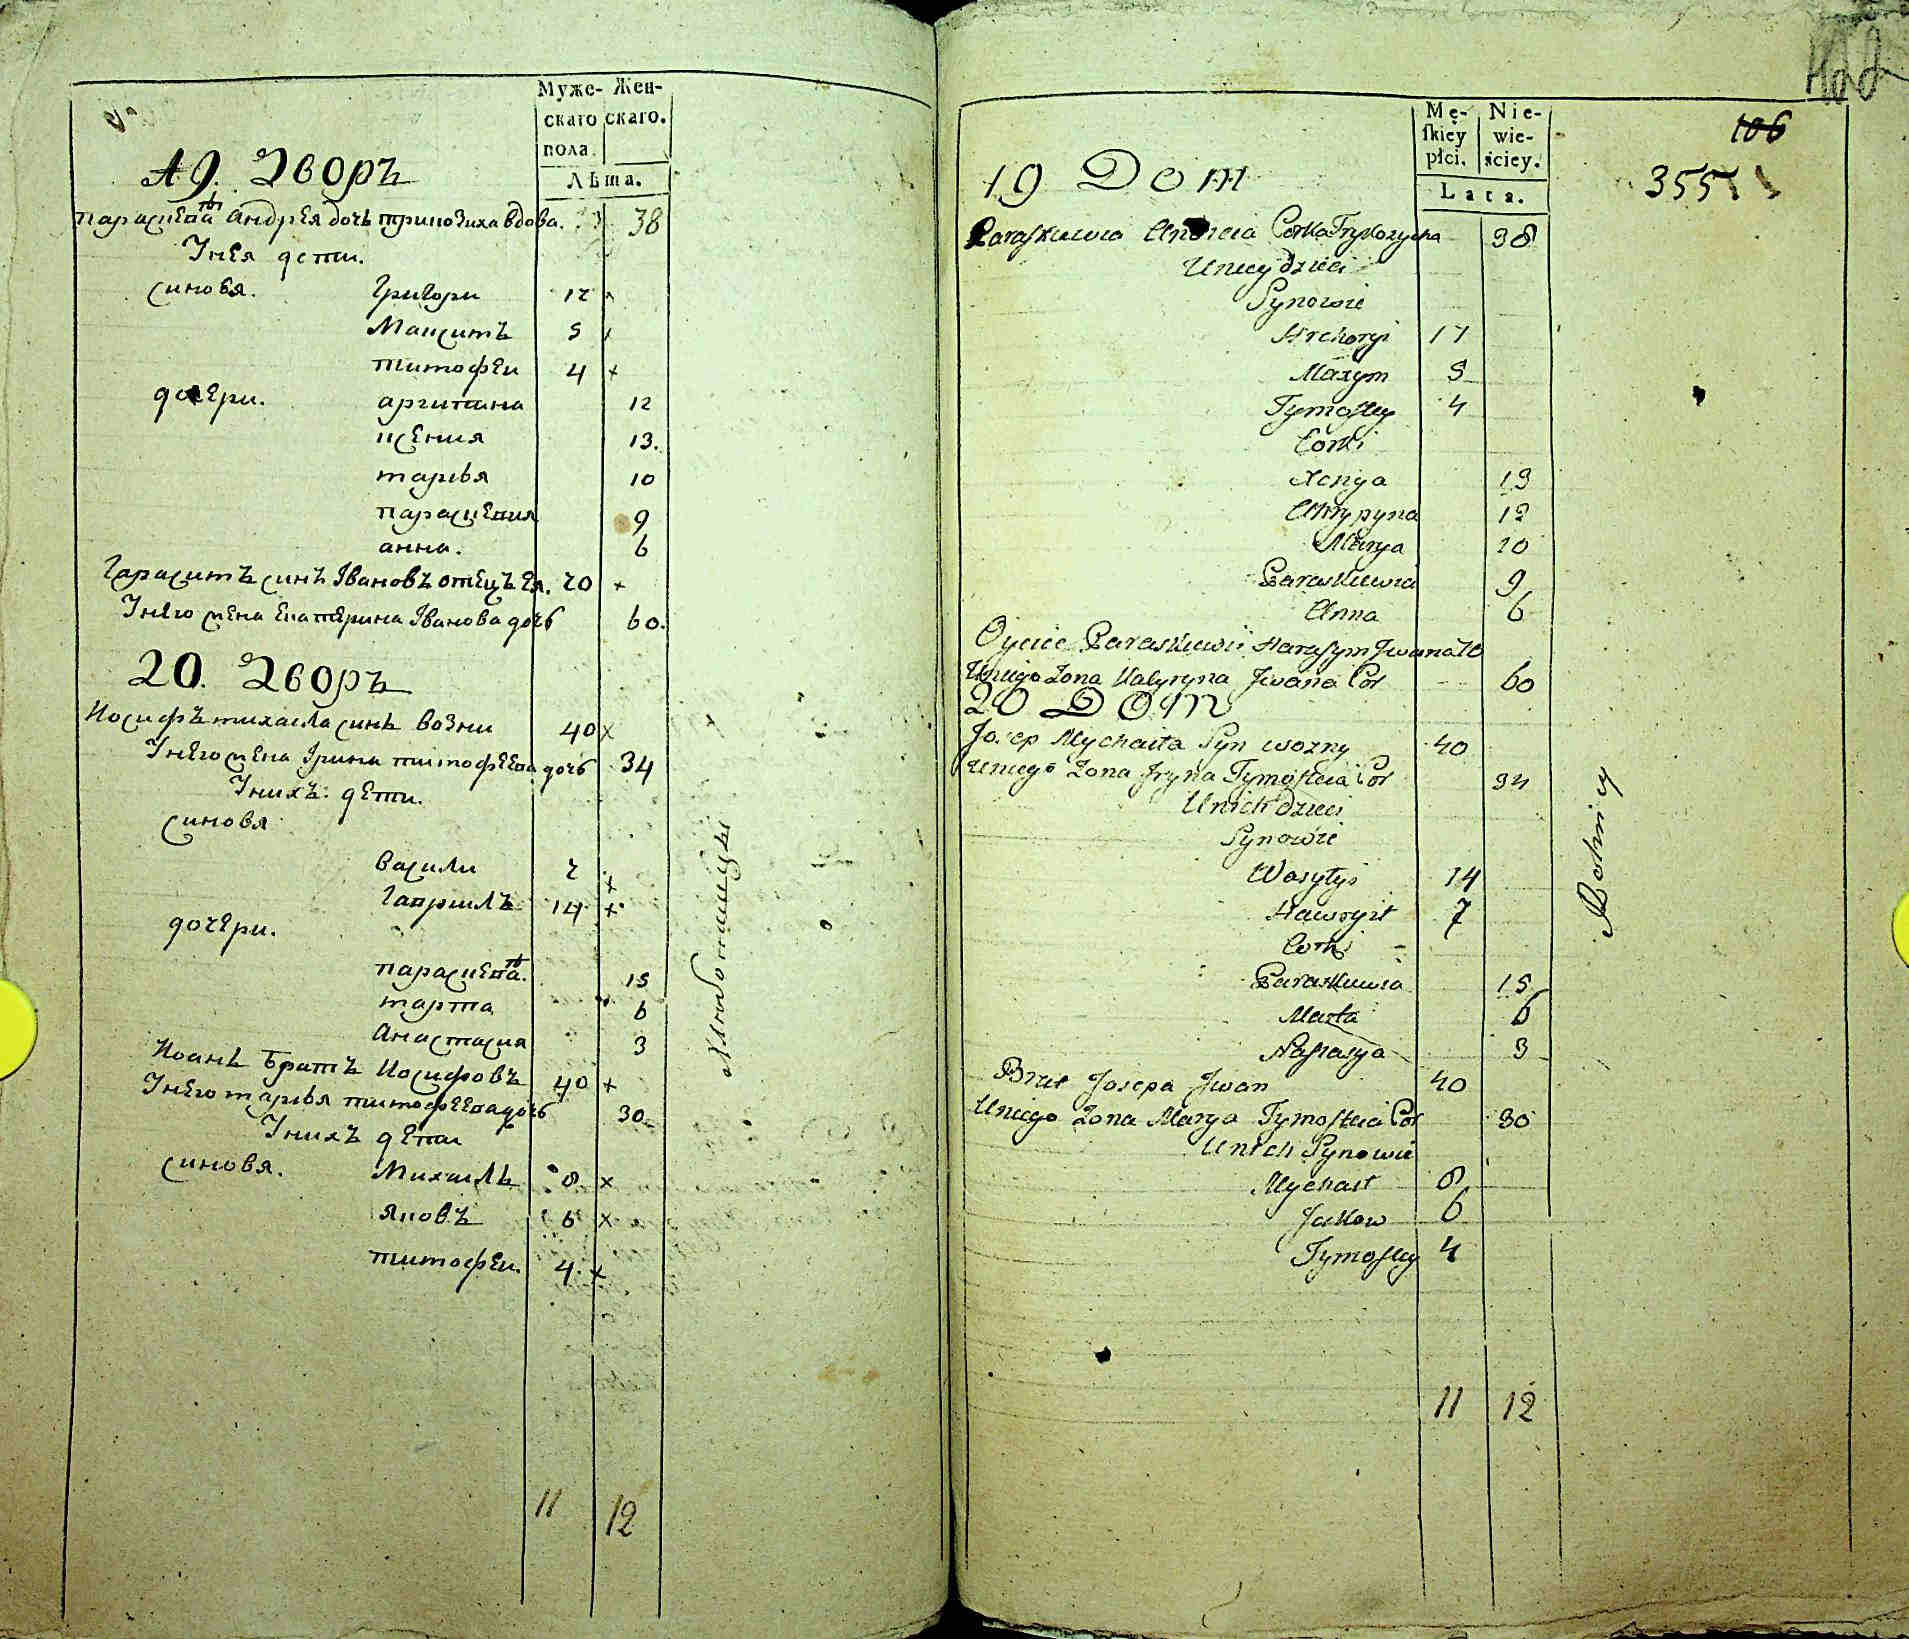 Муже- Жен-
скаго скаго.
пола.
Лѣта.
19. Дворъ
параскева Андрея дочь триковиха вдова. 38
Унея дети.
синовя. Григори 17
Максимъ 5
тимофеи 4
дочери. агрипина 12
ксения 13.
марья 10
параскевия 9
анна. 6
Гарасимъ синъ Івановъ отецъ Ея. 70
Унего жена Екатерина Іванова дочь 60.
20. Дворъ
Иосифъ михаила синъ возни 40
Унего жена Ірина тимофеева дочь 34
Унихъ дети.
синовя
васили 7
Гаврилъ 14
дочери.
параскева. 15
марта 6
Анастасия 3
Иоанъ братъ Иосифовъ 40
Унего марья тимофеева дочь 30
Унихъ дети
синовя. Михаилъ 8
яковъ 6
тимофеи. 4
хлиботницы
11 12
106
355
Mę- Nie-
ſkiey wie-
płci. ściey.
Lata.
19 Dom
Paraskiewia Andreia Corka Trykozycha 38
Uniey dzieci
Synowie
Hrehoryi 17
Maxym 5
Tymofiey 4
Corki
Xenya 13
Ahrypyna 12
Marya 10
Paraskiewia 9
Anna 6
Oyciec Paraskiewii Harasym Jwana 70
Uniego Zona Kateryna Jwana Cor 60
20 Dom
Josep Mychaiła Syn wozny 40
Uniego Zona Iryna Tymofieia Cor 34
Unich dzieci
Synowie
Wasylyi 14
Hawryił 7
Corki
Paraskiewia 15
Marta 6
Nastasya 3
Brat Josepa Jwan 40
Uniego Zona Marya Tymofieia Cor 30
Unich Synowie
Mychaił 8
Jakow 6
Tymofiey 4
Rolnicy
11 12